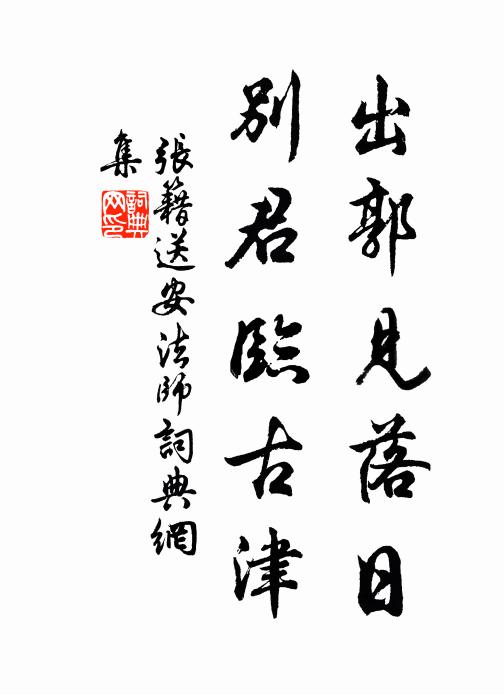 出郭見落日
別君臨古津
張籍送安法師詞典網
集
詞典
网印